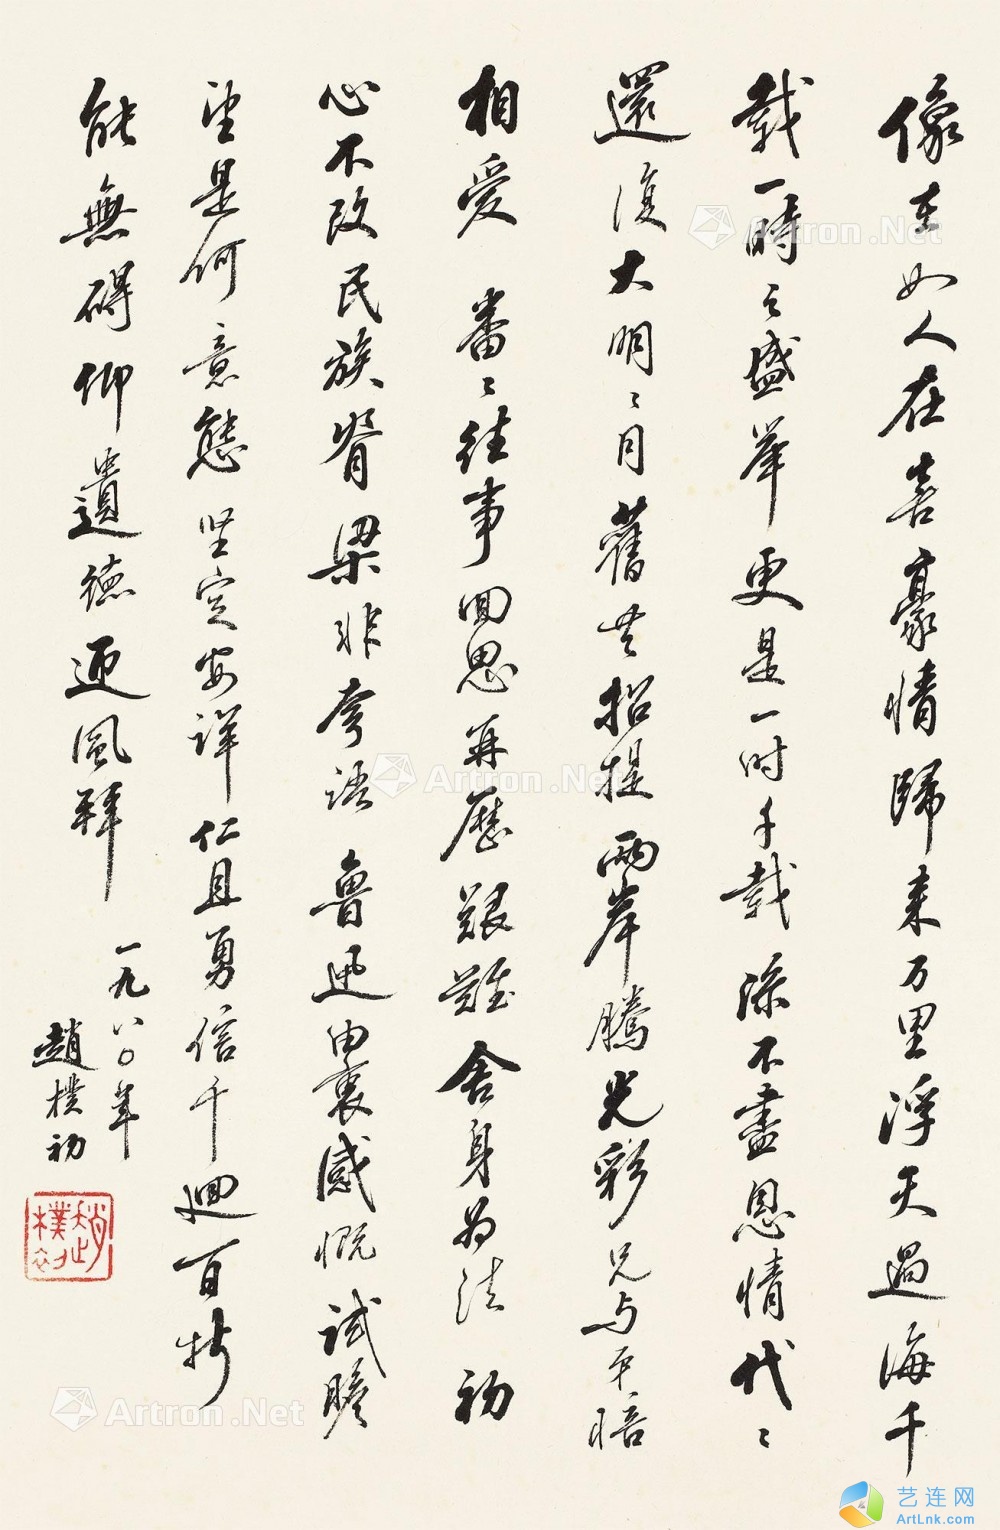 像在如人在喜豪情歸来万里浮天過海千
載一時之盛举更是一时千載添不盡恩情代〻
還復大明〻月舊共招提兩岸騰光彩兄与弟倍
相爱番〻往事回思再歷艱難舍身为法初
心不改民族脊梁非夸语魯迅由衷感慨試瞻
望是何意態坚定安详仁且勇信千迴百折
能無碍仰遺德迎風拜
一九八〇年
趙樸初
趙樸初
Artron.Net
Artron.Net
Artron.Net
艺连网
ArtLnk.com